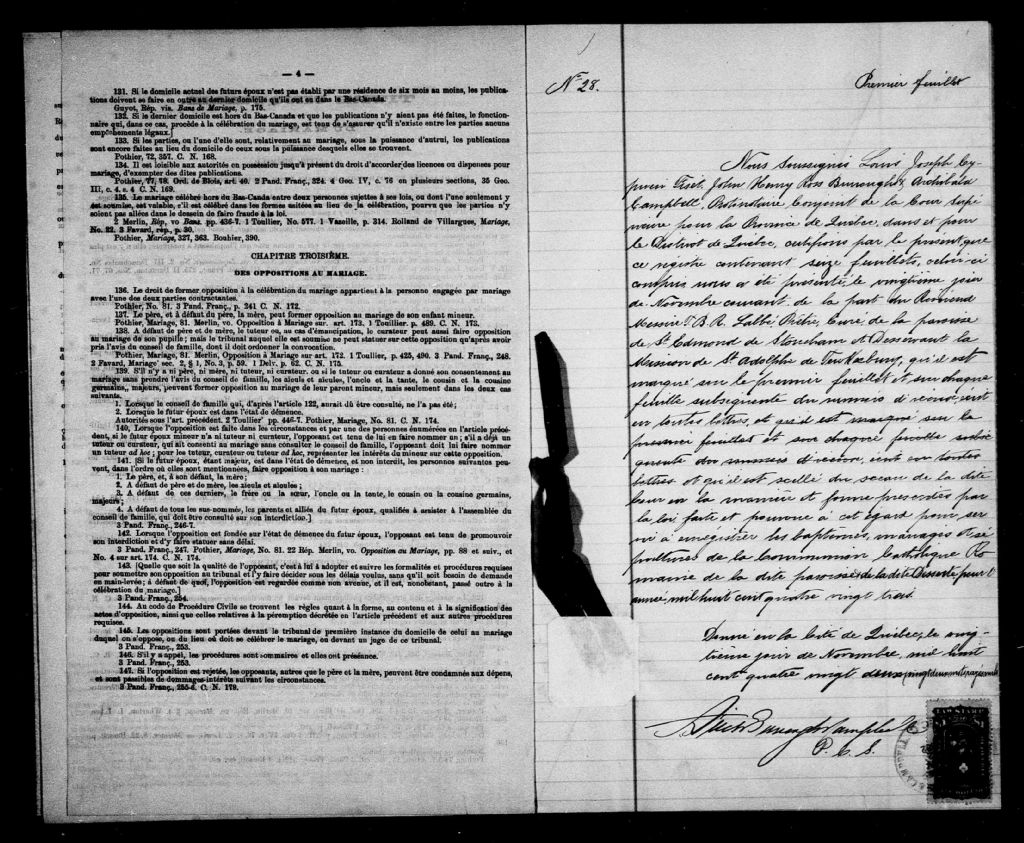 — 4 —
131. Si le domicile actuel des futurs époux n'est pas établi par une résidence de six mois au moins, les publica-
tions doivent se faire en outre au dernier domicile qu'ils ont eu dans le Bas-Canada.
Guyot, Rép. vis. Bans de Mariage, p. 175.
132. Si le dernier domicile est hors du Bas-Canada et que les publications n'y aient pas été faites, le fonction-
naire qui, dans ce cas, procède à la célébration du mariage, est tenu de s'assurer qu'il n'existe entre les parties aucuns
empêchements légaux.]
133. Si les parties, ou l'une d'elles sont, relativement au mariage, sous la puissance d'autrui, les publications
sont encore faites au lieu du domicile de ceux sous la puissance desquels elles se trouvent.
Pothier, 72, 357. C. N. 168.
134. Il est loisible aux autorités en possession jusqu'à présent du droit d'accorder des licences ou dispenses pour
mariage, d'exempter des dites publications.
Pothier, 77, 78. Ord. de Blois, art. 40. 2 Pand. Franç., 324. 4 Geo. IV, c. 76 en plusieurs sections, 35 Geo.
III, c. 4, s. 4 C. N. 169.
135. Le mariage célébré hors du Bas-Canada entre deux personnes sujettes à ses lois, ou dont l'une seulement y
est soumise, est valable, s'il est célébré dans les formes usitées au lieu de la célébration, pourvu que les parties n'y
soient pas allées dans le dessein de faire fraude à la loi.
2 Merlin, Rép. vo Bans, pp. 436-7. 1 Toullier, No. 577. 1 Vazeille, p. 314. Rolland de Villargues, Mariage,
No. 22. 3 Favard, rép., p. 30.
Pothier, Mariage, 327, 363. Bouhier, 390.
CHAPITRE TROISIÈME.
DES OPPOSITIONS AU MARIAGE.
136. Le droit de former opposition à la célébration du mariage appartient à la personne engagée par mariage
avec l'une des deux parties contractantes.
Pothier, No. 81. 3 Pand. Franç., p. 241 C. N. 172.
137. Le père, et à défaut du père, la mère, peut former opposition au mariage de son enfant mineur.
Pothier, Mariage, 81. Merlin, vo. Opposition à Mariage sur. art. 173. 1 Touillier. p. 489. C. N. 173.
138. A défaut de père et de mère, le tuteur ou, au cas d'émancipation, le curateur peut aussi faire opposition
au mariage de son pupille; mais le tribunal auquel elle est soumise ne peut statuer sur cette opposition qu'après avoir
pris l'avis du conseil de famille, dont il doit ordonner la convocation.
Pothier, Mariage, 81. Merlin, Opposition à Mariage sur art. 172. 1 Toullier, p. 425, 490. 3 Pand. Franç., 248.
2 Favard, Mariage sec. 2, § 1, No. 3, p. 59. 1 Delv. p. 62. C. N. 175.
139. S'il n'y a ni père, ni mère, ni tuteur, ni curateur, ou si le tuteur ou curateur a donné son consentement au
mariage sans prendre l'avis du conseil de famille, les aïeuls et aïeules, l'oncle et la tante, le cousin et la cousine
germains, majeurs, peuvent former opposition au mariage de leur parent mineur, mais seulement dans les deux cas
suivants.
1. Lorsque le conseil de famille qui, d'après l'article 122, aurait dû être consulté, ne l'a pas été;
2. Lorsque le futur époux est dans l'état de démence.
Autorités sous l'art. précédent. 2 Toullier pp. 446-7. Pothier, Mariage, No. 81. C. N. 174.
140. Lorsque l'opposition est faite dans les circonstances et par une des personnes énumérées en l'article précé-
dent, si le futur époux mineur n'a ni tuteur ni curateur, l'opposant est tenu de lui en faire nommer un; s'il a déjà un
tuteur ou curateur, qui ait consenti au mariage sans consulter le conseil de famille, l'opposant doit lui faire nommer
un tuteur ad hoc; pour les tuteur, curateur ou tuteur ad hoc, représenter les intérêts du mineur sur cette opposition.
141. [Si le futur époux, étant majeur, est dans l'état de démence, et non interdit, les personnes suivantes peu-
vent, dans l'ordre où elles sont mentionnées, faire opposition à son mariage:
1. Le père, et, à son défaut, la mère;
2. A défaut de père et de mère, les aïeuls et aïeules;
3. A défaut de ces derniers, le frère ou la sœur, l'oncle ou la tante, le cousin ou la cousine germains,
majeurs;
4. A défaut de tous les sus-nommés, les parents et alliés du futur époux, qualifiés à assister à l'assemblée du
conseil de famille, qui doit être consulté sur son interdiction.]
3 Pand. Franç., 246-7.
142. Lorsque l'opposition est fondée sur l'état de démence du futur époux, l'opposant est tenu de promouvoir
son interdiction et d'y faire statuer sans délai.
3 Pand. Franç., 247. Pothier, Mariage, No. 81. 22 Rép. Merlin, vo. Opposition au Mariage, pp. 88 et suiv., et
No. 4 sur art. 174. C. N. 174.
143. [Quelle que soit la qualité de l'opposant, c'est à lui à adopter et suivre les formalités et procédures requises
pour soumettre son opposition au tribunal et l'y faire décider sous les délais voulus, sans qu'il soit besoin de demande
en main-levée; à défaut de quoi, l'opposition est regardée comme non avenue, et il est, nonobstant, passé outre à la
célébration du mariage.]
3 Pand. Franç., 254.
144. Au code de Procédure Civile se trouvent les règles quant à la forme, au contenu et à la signification des
actes d'opposition, ainsi que celles relatives à la péremption décrétée en l'article précédent et aux autres procédures
requises.
145. Les oppositions sont portées devant le tribunal de première instance du domicile de celui au mariage
duquel on s'oppose, ou du lieu où doit se célébrer le mariage, ou devant un juge de ce tribunal.
3 Pand. Franç., 253.
146. S'il y a appel, les procédures sont sommaires et elles ont préséance.
3 Pand. Franç., 253.
147. Si l'opposition est rejetée, les opposants, autres que le père et la mère, peuvent être condamnés aux dépens,
et sont passibles de dommages-intérêts suivant les circonstances.
3 Pand. Franç., 255-6. C. N. 179.
No. 28.
Premier feuillet
Nous soussignés Louis Joseph Cy-
prien Fiset, John Henry Ross Burroughs, Archibald
Campbell, Protonotaire Conjoint de la Cour Supé
rieure pour la Province de Québec, dans et pour
le District de Québec, certifions par le présent que
ce registre contenant seize feuillets, celui-ci
compris nous a été présenté le vingtième jour
de Novembre courant de la part du Révérend
Messire F. B. R. Prêtre, Curé de la paroisse
de St Edmond de Stoneham et Desservant la
Mission de St Adolphe de Tewkesbury, qu'il est
marqué sur le premier feuillet et sur chaque
feuille subséquente du numéro d'icelui, écrit
en toutes lettres, et qu'il est marqué sur le
premier feuillet et sur chaque feuille subsé
quente du numéro d'icelui, écrit en toutes
lettres et qu'il est scellé du sceau de la dite
Cour en la manière et forme prescrites par
la loi faite et pourvue à cet égard pour ser
vir à enregistrer les baptêmes, mariages et sé
pultures de la Communion Catholique Ro
maine de la dite paroisse & de la dite Desserte pour l'
année mil huit cent quatre vingt trois
Donné en la Cité de Québec, le ving-
tième jour de Novembre, mil huit
cent quatre vingt deux
Fiset Burroughs Campbell
P. C. S.
LAW STAMP